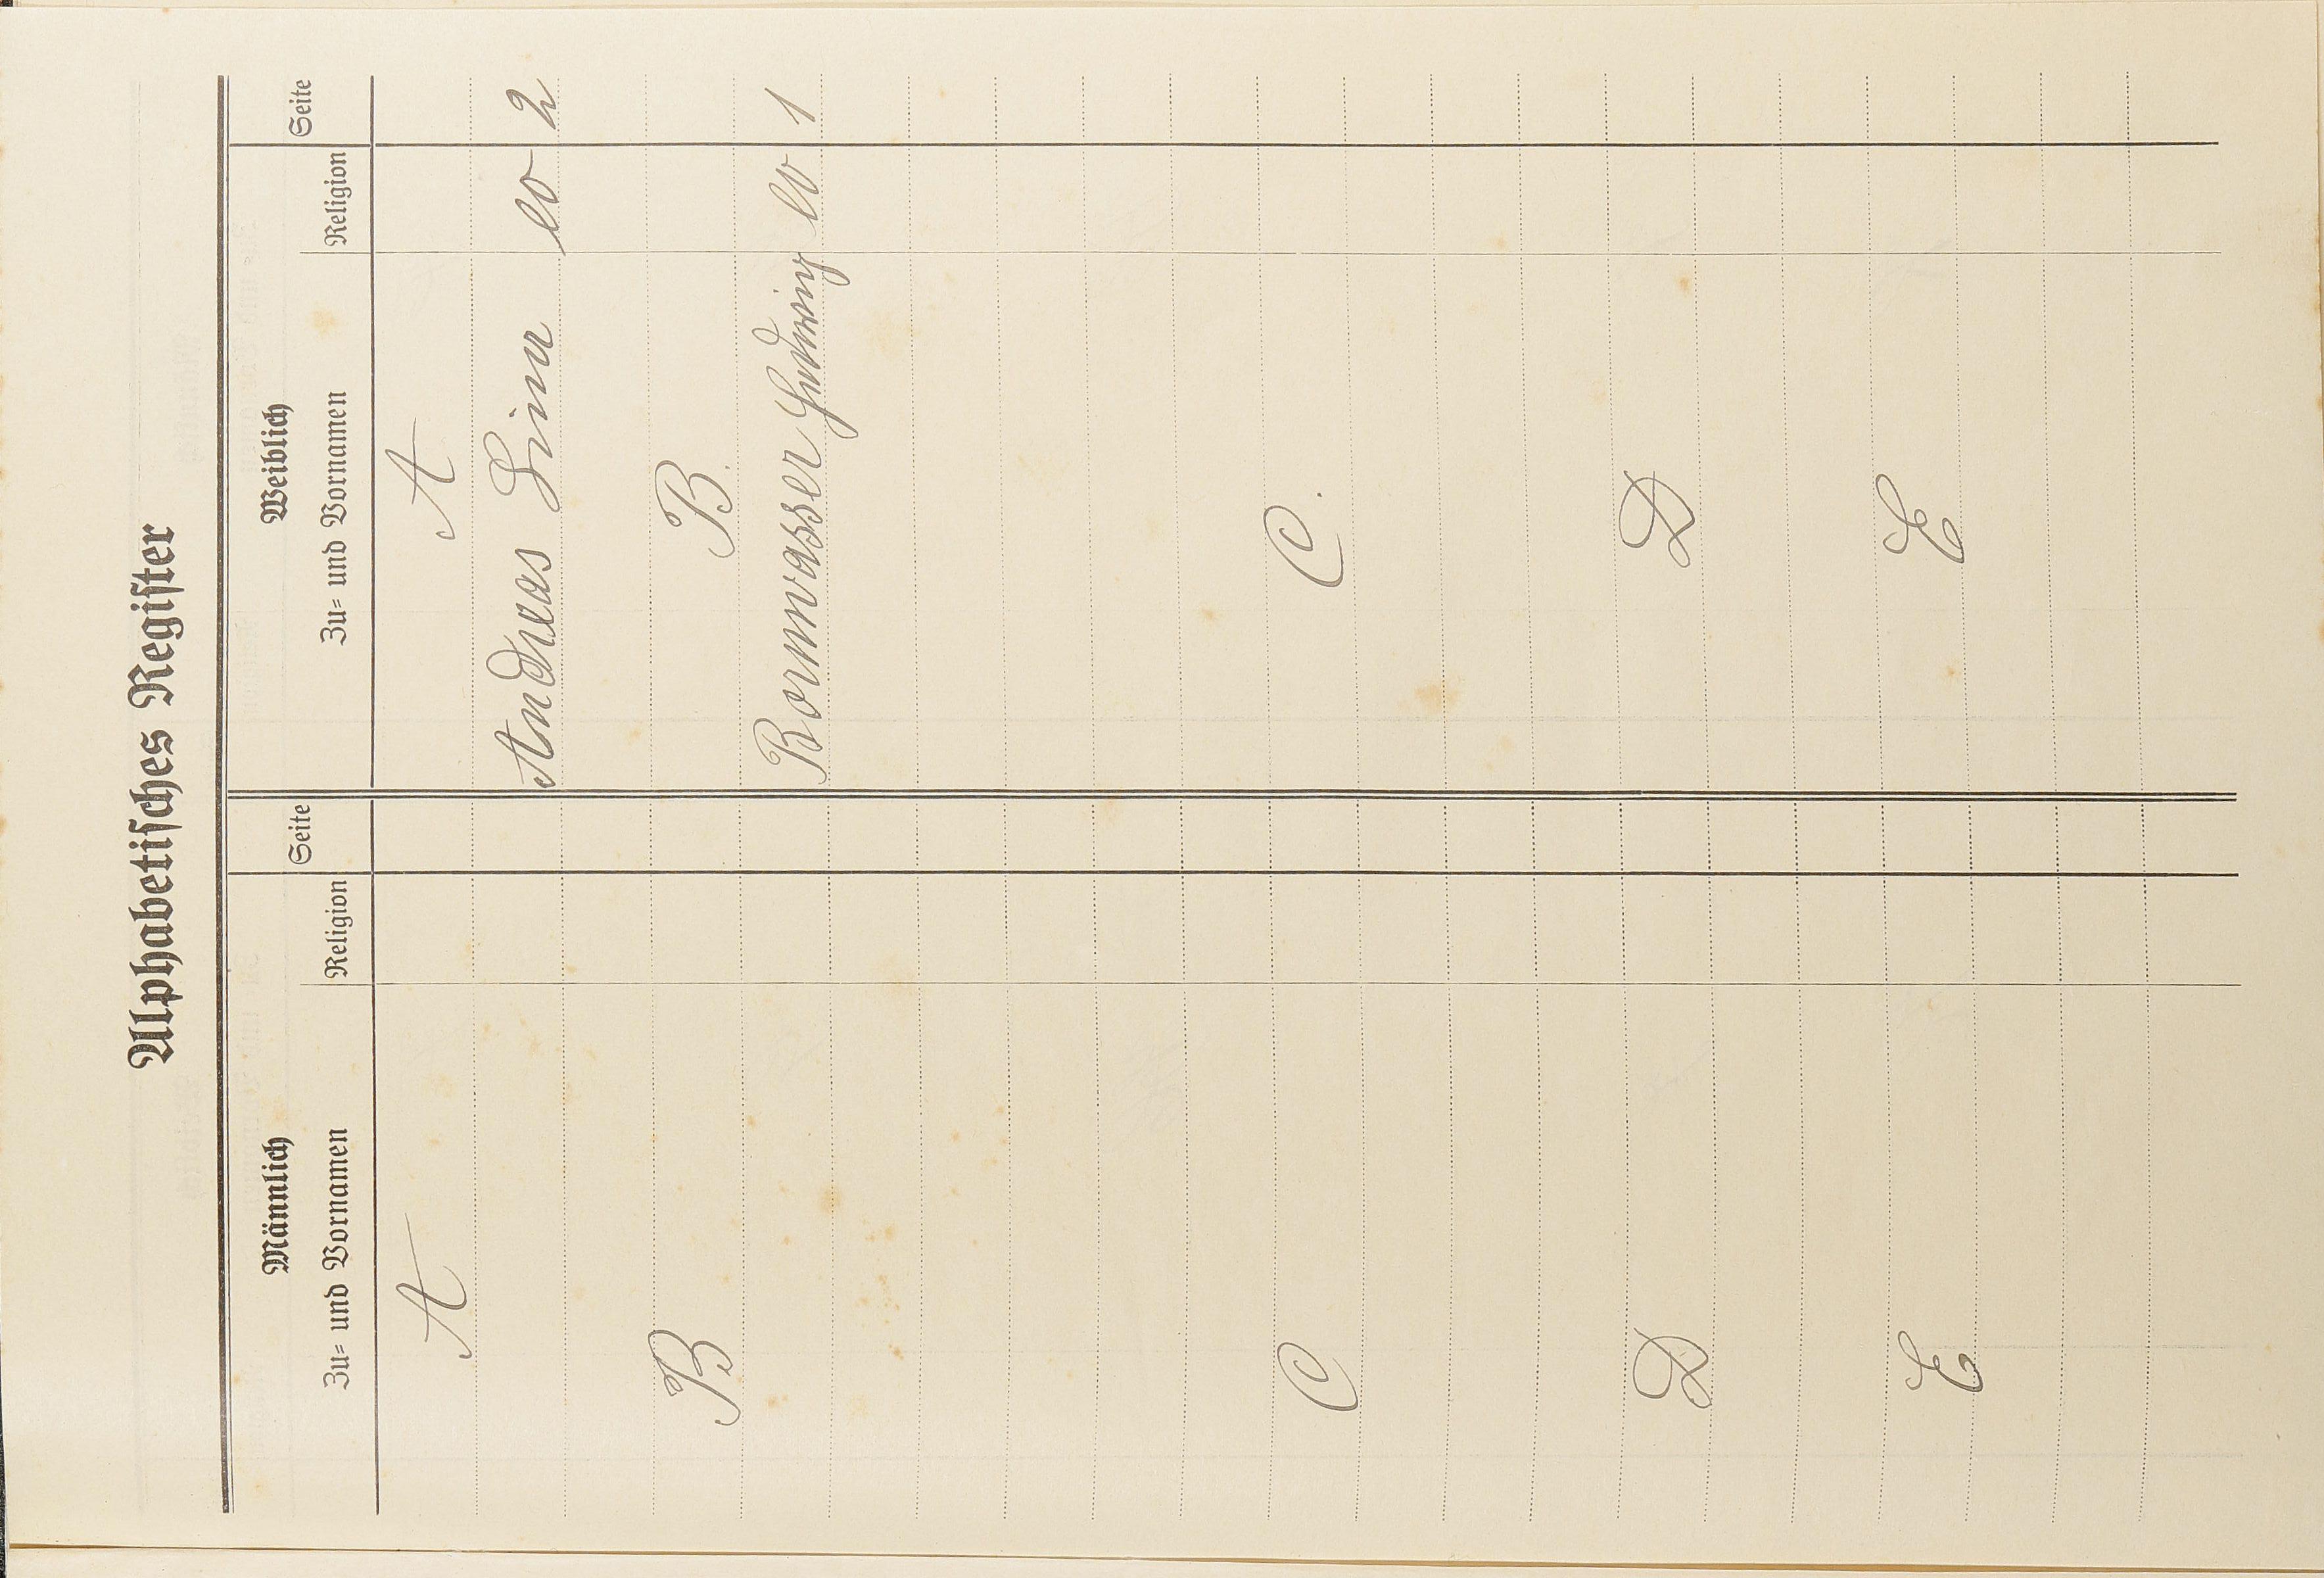 Alphabetisches Register
Männlich Weiblich
Zu= und Vornamen Religion Seite Zu= und Vornamen Religion Seite
A A
Andreas Lina ev 2
B B.
Bornwasser Hedwig ev 1
C C.
D D
E E